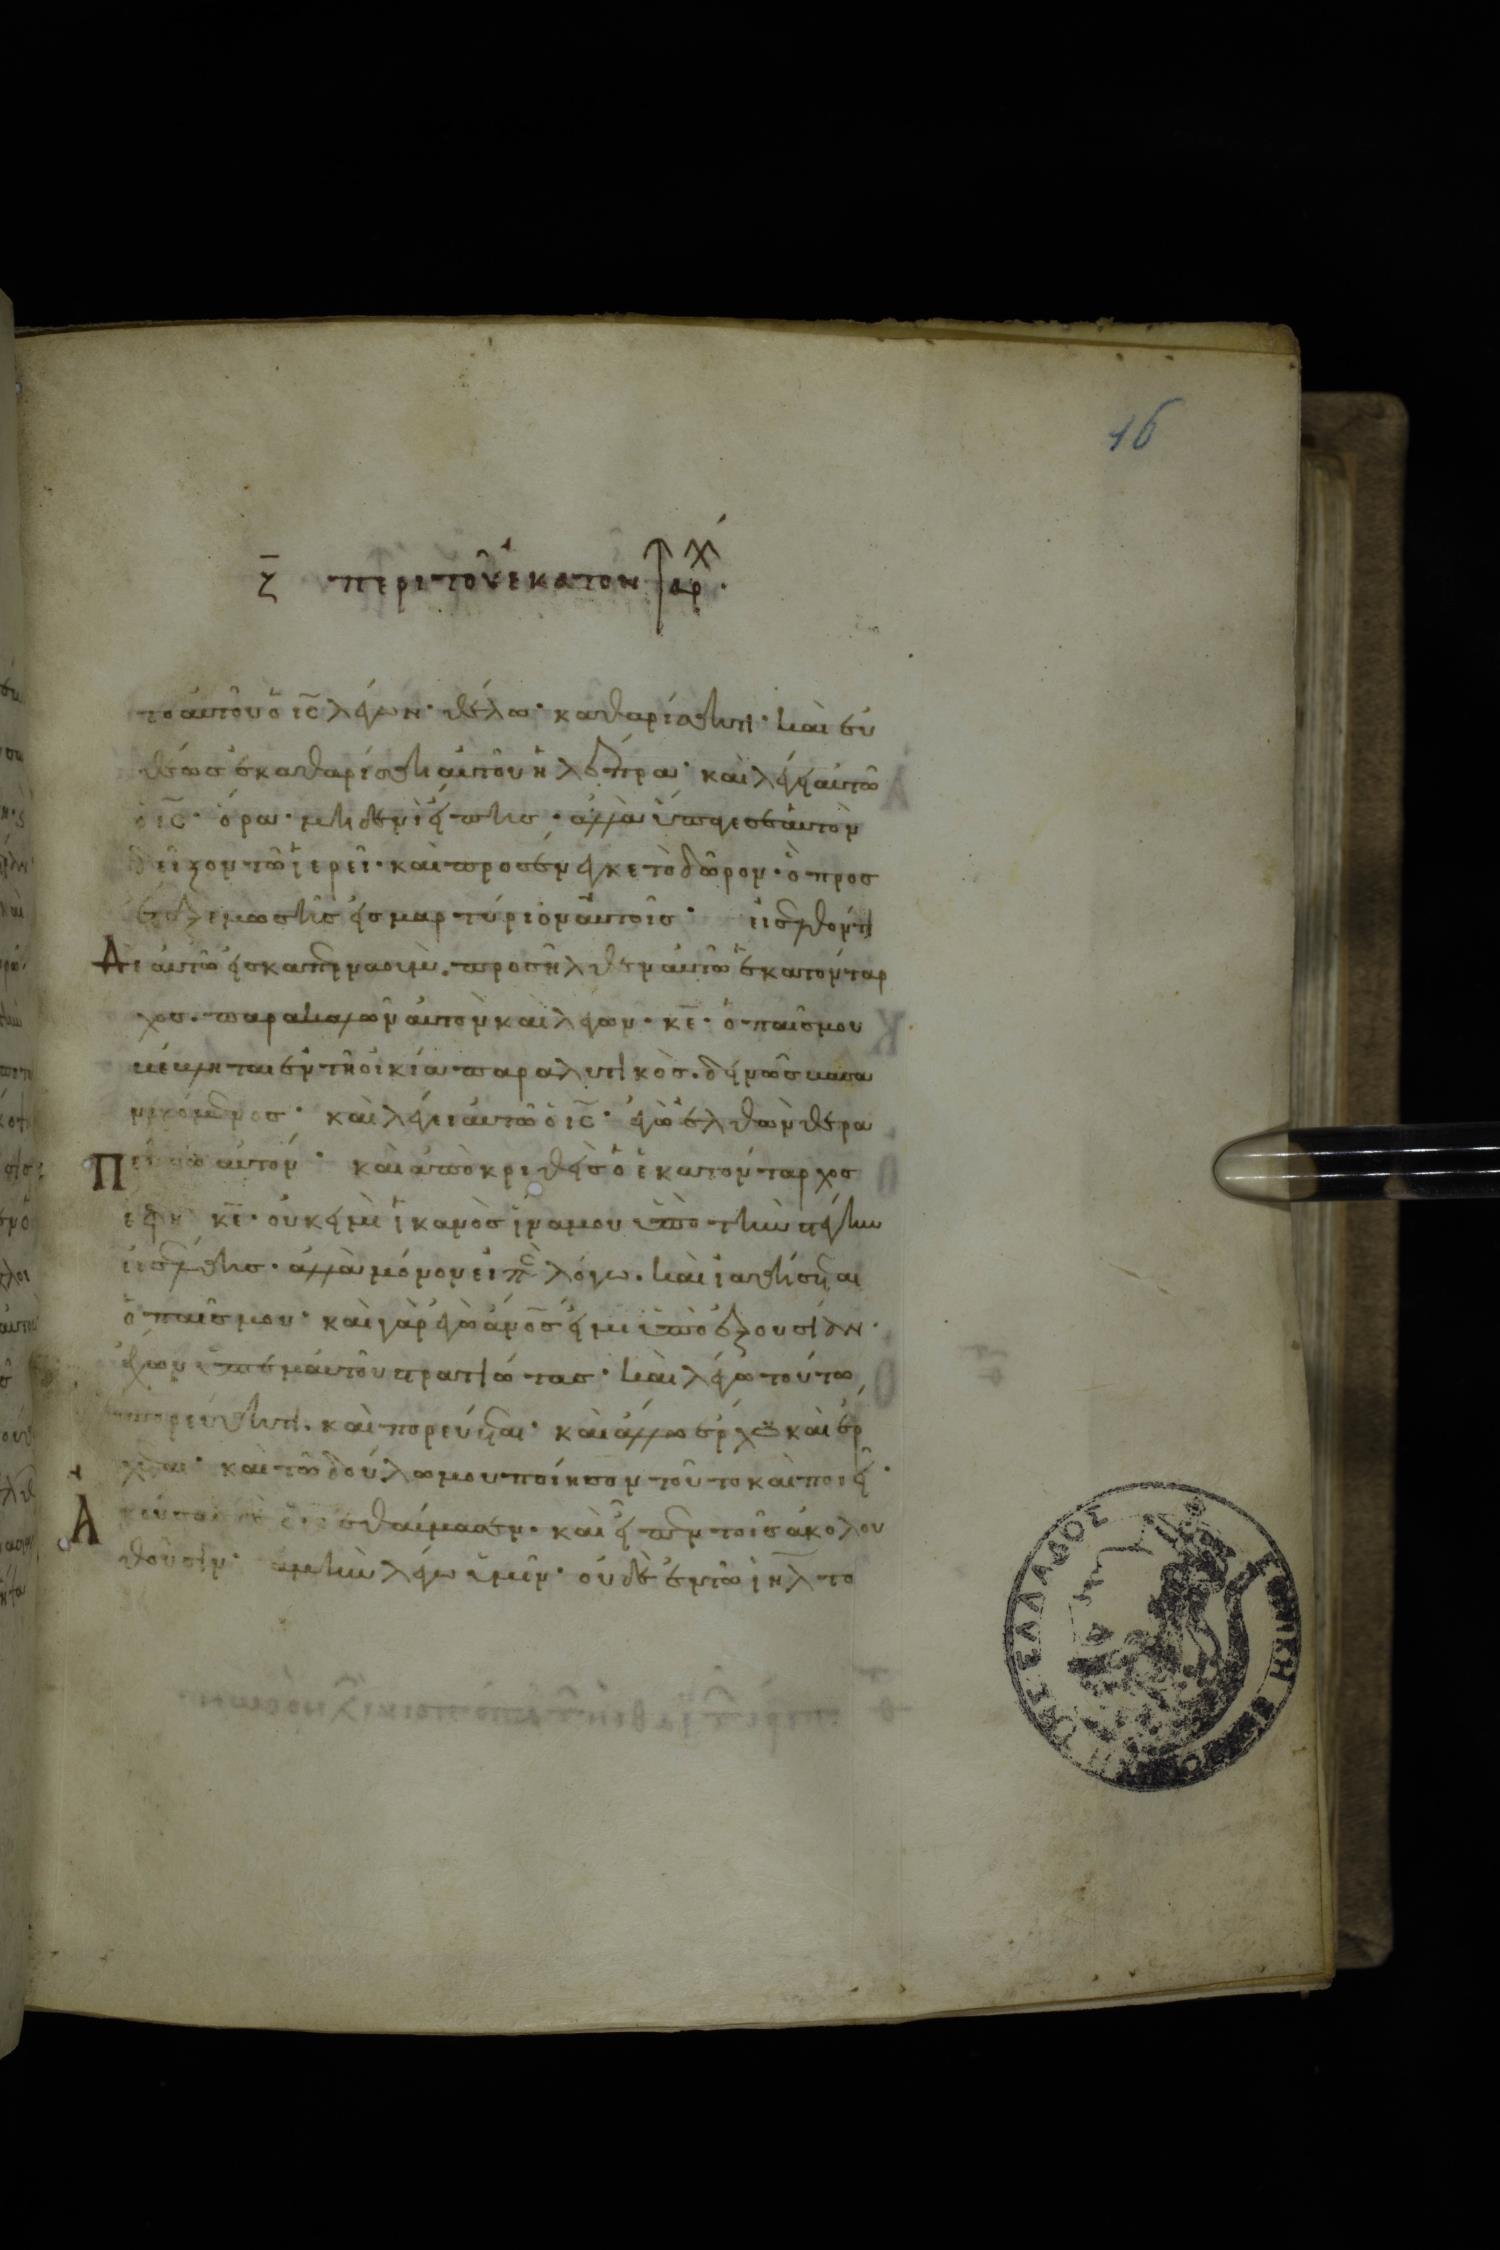 16
ζ̄ περι τοῦ ἑκατοντάρχ
το αυτοῦ ὁ ις̄ λέγων· θέλω· καθαρίσθητι· καὶ εὐ
θέως ἐκαθαρίσθη αυτοῦ ἡ λέπρα· καὶ λέγει αυτῶ
ὁ ις̄· ὅρα· μηδενὶ εἴπης· ἀλλὰ ὕπαγε σεαυτὸν
δεῖξον τῶ ἱερεῖ· καὶ προσένεγκε τὸ δῶρον· ὃ προσ
έταξε μωσῆς εἰς μαρτύριον αὐτοῖς· εἰσελθόντι
Δὲ αὐτῶ εἰς καπερναουμ· προσῆλθεν αυτῶ ἑκατόνταρ
χος· παρακαλῶν ἀυτὸν καὶ λέγων· κε̄· ὁ παῖς μου
βέβληται ἐν τῆ οἰκία παραλυτικὸς· δεινῶς βασα
νιζόμενος· καὶ λέγει ἀυτῶ ὁ ις̄· ἐγὼ ἐλθὼν θερα
πεύσω αυτόν· καὶ ἀποκριθεὶς ὁ ἑκατόνταρχος
Π
ἔφη κε̄· οὐκ εἰμὶ ἱκανὸς ἵνα μου ὑπὸ τὴν στέγην
εἰσέλθης· ἀλλὰ μόνον εἰπὲ λόγω· καὶ ἰαθήσεται
ὁ παῖς μου· καὶ γὰρ ἐγὼ ἄνος̄ εἰμι ὑπὸ ἐξουσίαν·
ἔχων ὑπ εμαυτοῦ στρατιώτας· καὶ λέγω τούτω
πορεύθητι· καὶ πορεύεται· καὶ ἄλλω ἔρχου καὶ ἔρ
χεται· καὶ τῶ δούλω μου ποίησον τοῦτο καὶ ποιεῖ·
Ἀ
κούσας δὲ ὁ ις̄ ἐθαύμασεν· καὶ εἶπεν τοῖς ἀκολου
θοῦσιν· αμὴν λέγω ὑμῖν· οὐδὲ ἐν τῶ ιηλ̄ το
ΕΘΝΙΚΗ ΒΙΒΛΙΟΘΗΚΗ ΤΗΣ ΕΛΛΑΔΟΣ